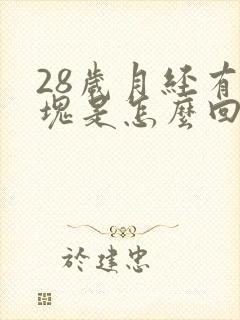 28歲月經有
塊是怎麼回
於建忠